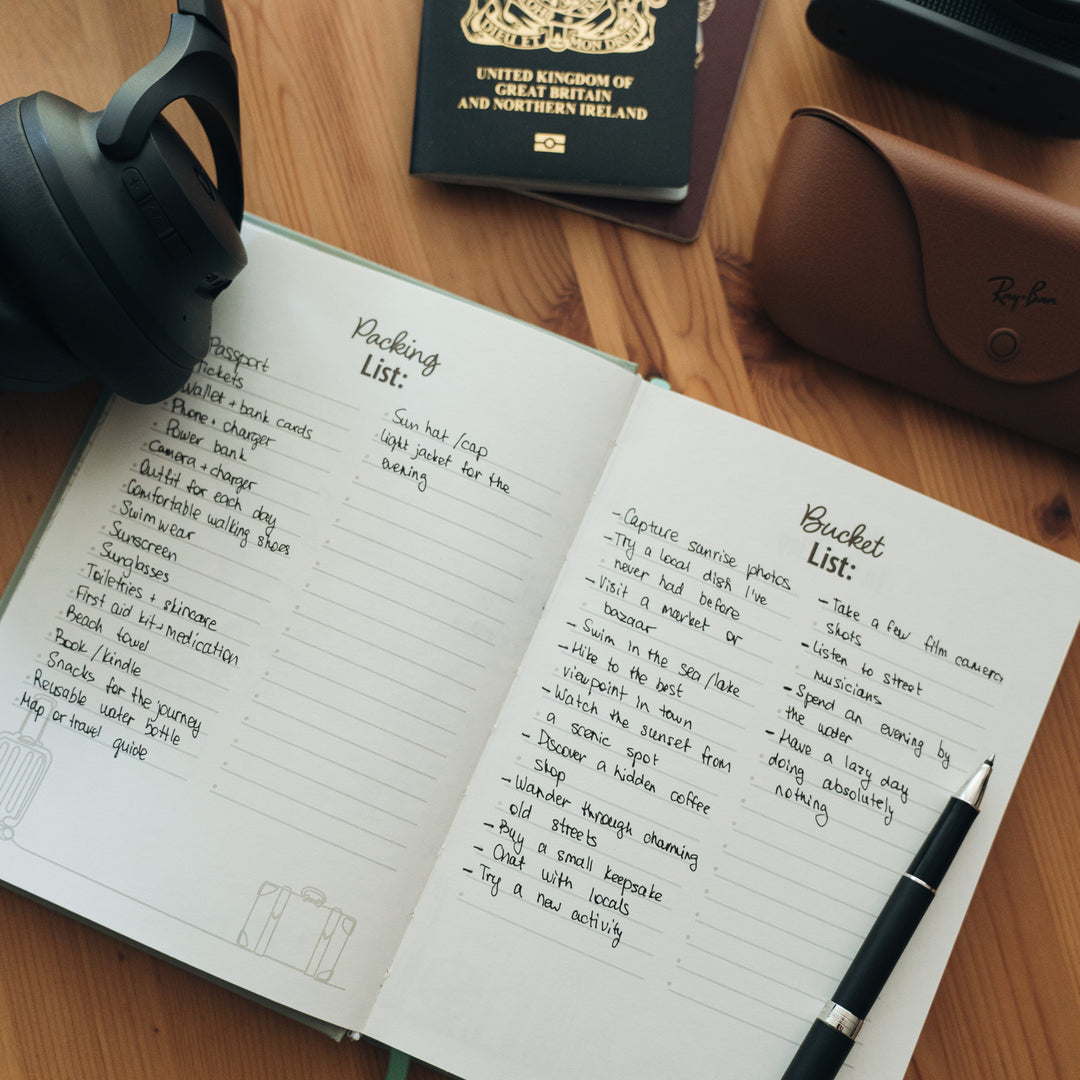 DIEU ET MON DROIT
UNITED KINGDOM OF
GREAT BRITAIN
AND NORTHERN IRELAND
Ray-Ban
Packing
List:
Passport
Tickets
Wallet + bank cards
Phone + charger
Power bank
Camera + charger
Outfit for each day
Comfortable walking shoes
Swimwear
Sunscreen
Sunglasses
Toiletries + skincare
First aid kit + medication
Beach towel
Book / kindle
Snacks for the journey
Reusable water bottle
Map or travel guide
Sun hat / cap
light jacket for the
evening
Bucket
List:
- Capture sunrise photos
- Try a local dish I've
never had before
- Visit a market or
bazaar
- Swim in the sea / lake
- Hike to the best
viewpoint in town
- Watch the sunset from
a scenic spot
- Discover a hidden coffee
shop
- Wander through charming
old streets
- Buy a small keepsake
- Chat with locals
- Try a new activity
- Take a few film camera
shots
- Listen to street
musicians
- Spend an evening by
the water
- Have a lazy day
doing absolutely
nothing